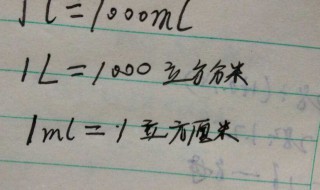 1L=1000mL
1L=1000立方分米
1ml=1立方厘米